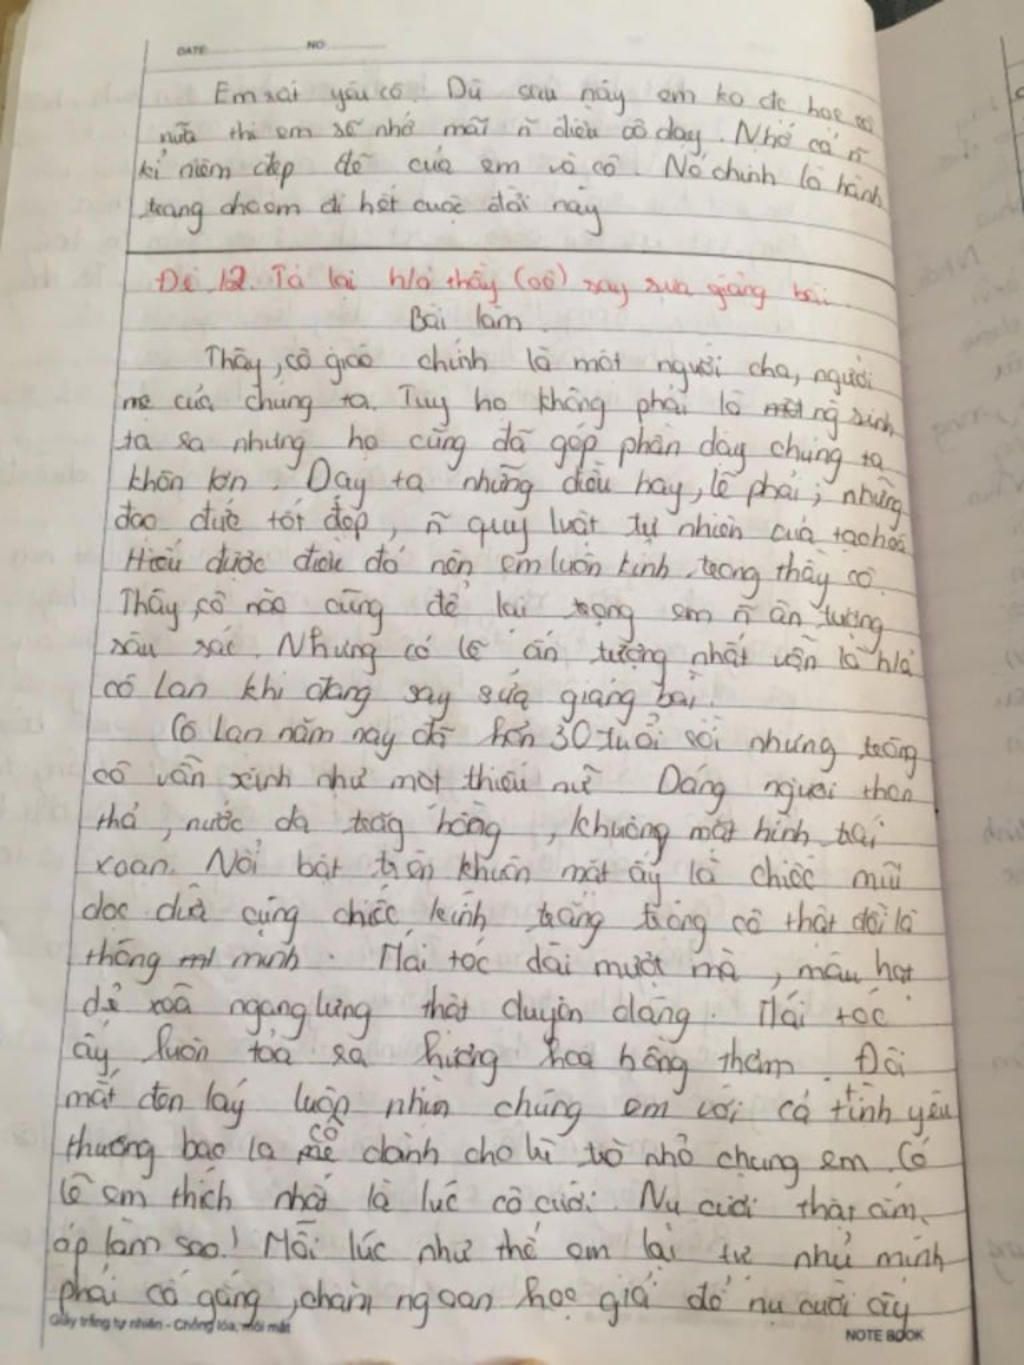 DATE NO
Em rất yêu cô. Dù sau này em ko đc học cô
nữa thì em sẽ nhớ mãi ~n điều cô dạy. Nhớ cả ~n
kỉ niệm đẹp đẽ của em và cô. Nó chính là hành
trang cho em đi hết cuộc đời này
Đề 12. Tả lại h/ả thầy (cô) say sưa giảng bài.
Bài làm.
Thầy, cô giáo chính là một người cha, người
mẹ của chúng ta. Tuy họ không phải là ng sinh
ta ra nhưng họ cũng đã góp phần dạy chúng ta
khôn lớn. Dạy ta những điều hay, lẽ phải; những
đạo đức tốt đẹp, ~n quy luật tự nhiên của tạo hoá
Hiểu được điều đó nên em luôn kính trọng thầy cô.
Thầy, cô nào cũng để lại trong em ~n ấn tượng
sâu sắc. Nhưng có lẽ ấn tượng nhất vẫn là h/ả
cô Lan khi đang say sưa giảng bài.
Cô Lan năm nay đã hơn 30 tuổi rồi nhưng trông
cô vẫn xinh như một thiếu nữ. Dáng người thon
thả, nước da trắg hồng, khuông mặt hình trái
xoan. Nổi bật trên khuôn mặt ấy là chiếc mũi
dọc dừa cùng chiếc kính trắng trông cô thật đôi là
thông minh. Mái tóc dài mượt mà, màu hạt
dẻ xoã ngang lưng thật duyên dáng. Mái tóc
ấy luôn tỏa ra hương hoa hồng thơm. Đôi
mắt đen láy luôn nhìn chúng em với cả tình yêu
thương bao la cô dành cho lũ trò nhỏ chúng em. Có
lẽ em thích nhất là lúc cô cười. Nụ cười thật ấm
áp làm sao! Mỗi lúc như thế em lại tự nhủ mình
phải cố gắng, chăm ngoan học giỏi để nụ cười ấy
Giấy trắng tự nhiên - Chống lóa, mỏi mắt
NOTE BOOK